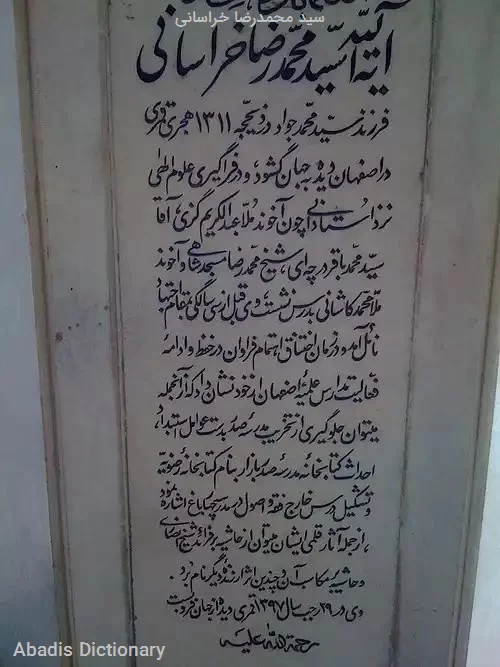 سید محمدرضا خراسانی
آیه الله سید محمد رضا خراسانی
فرزند سید محمد جواد در ذیحجه ۱۳۱۱ هجری قمری
در اصفهان دیده به جهان گشود، و در فراگیری علوم الهی
نزد استادانی چون آخوند ملا عبدالکریم گزی، آقا
سید محمد باقر درچه‌ای، شیخ محمد رضا مسجد شاهی و آخوند
ملا محمد کاشانی بدرس نشست، وی قبل از سی سالگی بمقام اجتهاد
نائل آمد و در زمان اختناق اهتمام فراوان در حفظ و ادامه
فعالیت مدارس علمیه اصفهان از خود نشان داد که از آنجمله
میتوان جلوگیری از تخریب مدرسه صدر بدست عوامل استبداد،
احداث کتابخانه مدرسه صدر بازار بنام کتابخانه رضویه
و تشکیل درس خارج فقه و اصول در مدرسه چهارباغ اشاره نمود
، از جمله آثار قلمی ایشان میتوان از حاشیه بر فرائد شیخ انصاری
و حاشیه بر مکاسب آن و چندین اثر ارزنده دیگر نام برد.
وی در ۲۹ رجب سال ۱۳۹۷ قمری دیده از جهان فرو بست
رحمة الله علیه
Abadis Dictionary